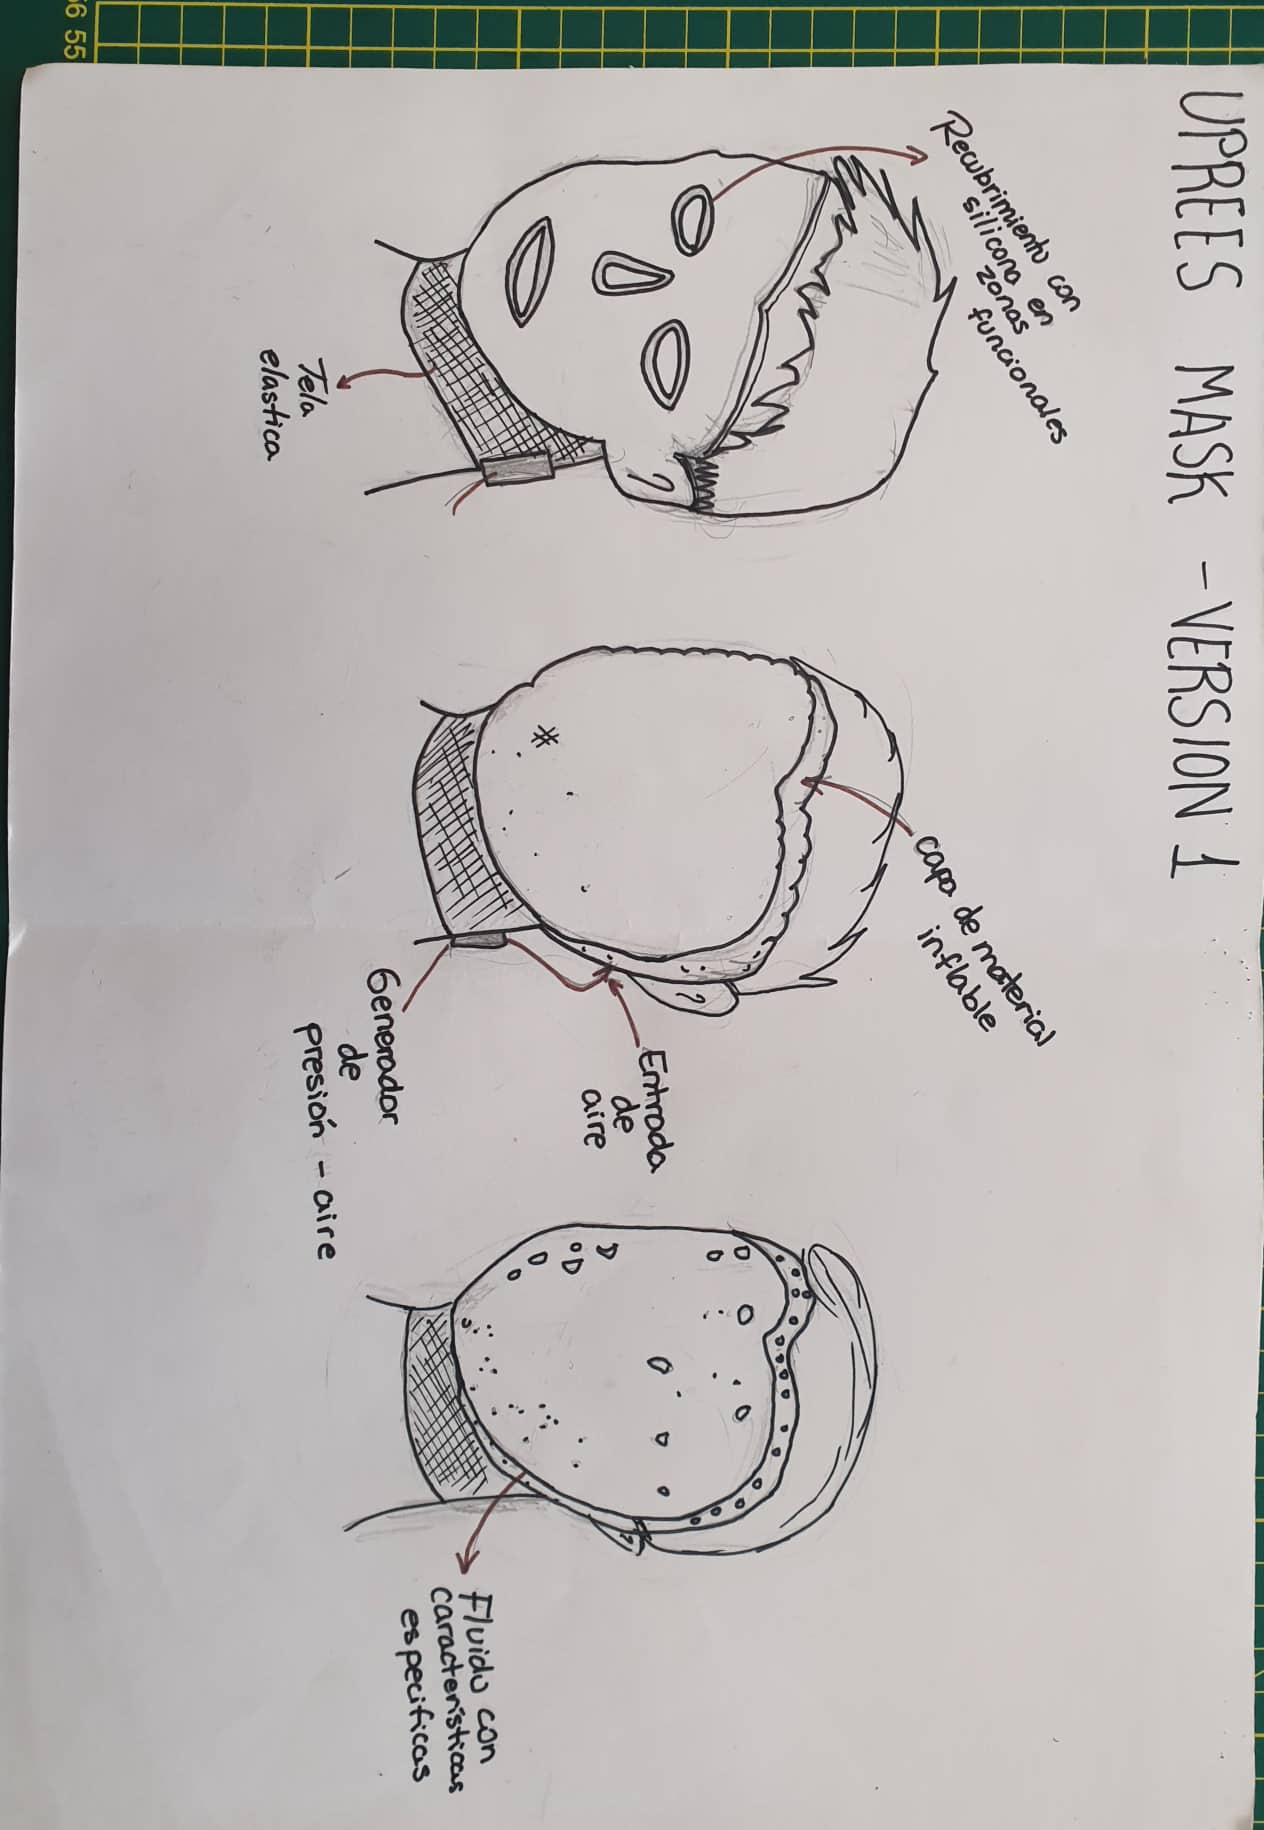 UPREES MASK - VERSION 1
Recubrimiento con
silicona en
zonas
funcionales
Tela
elastica
capa de material
inflable
Entrada
de
aire
Generador
de
presión - aire
Fluido con
caracteristicas
especificas
56 55